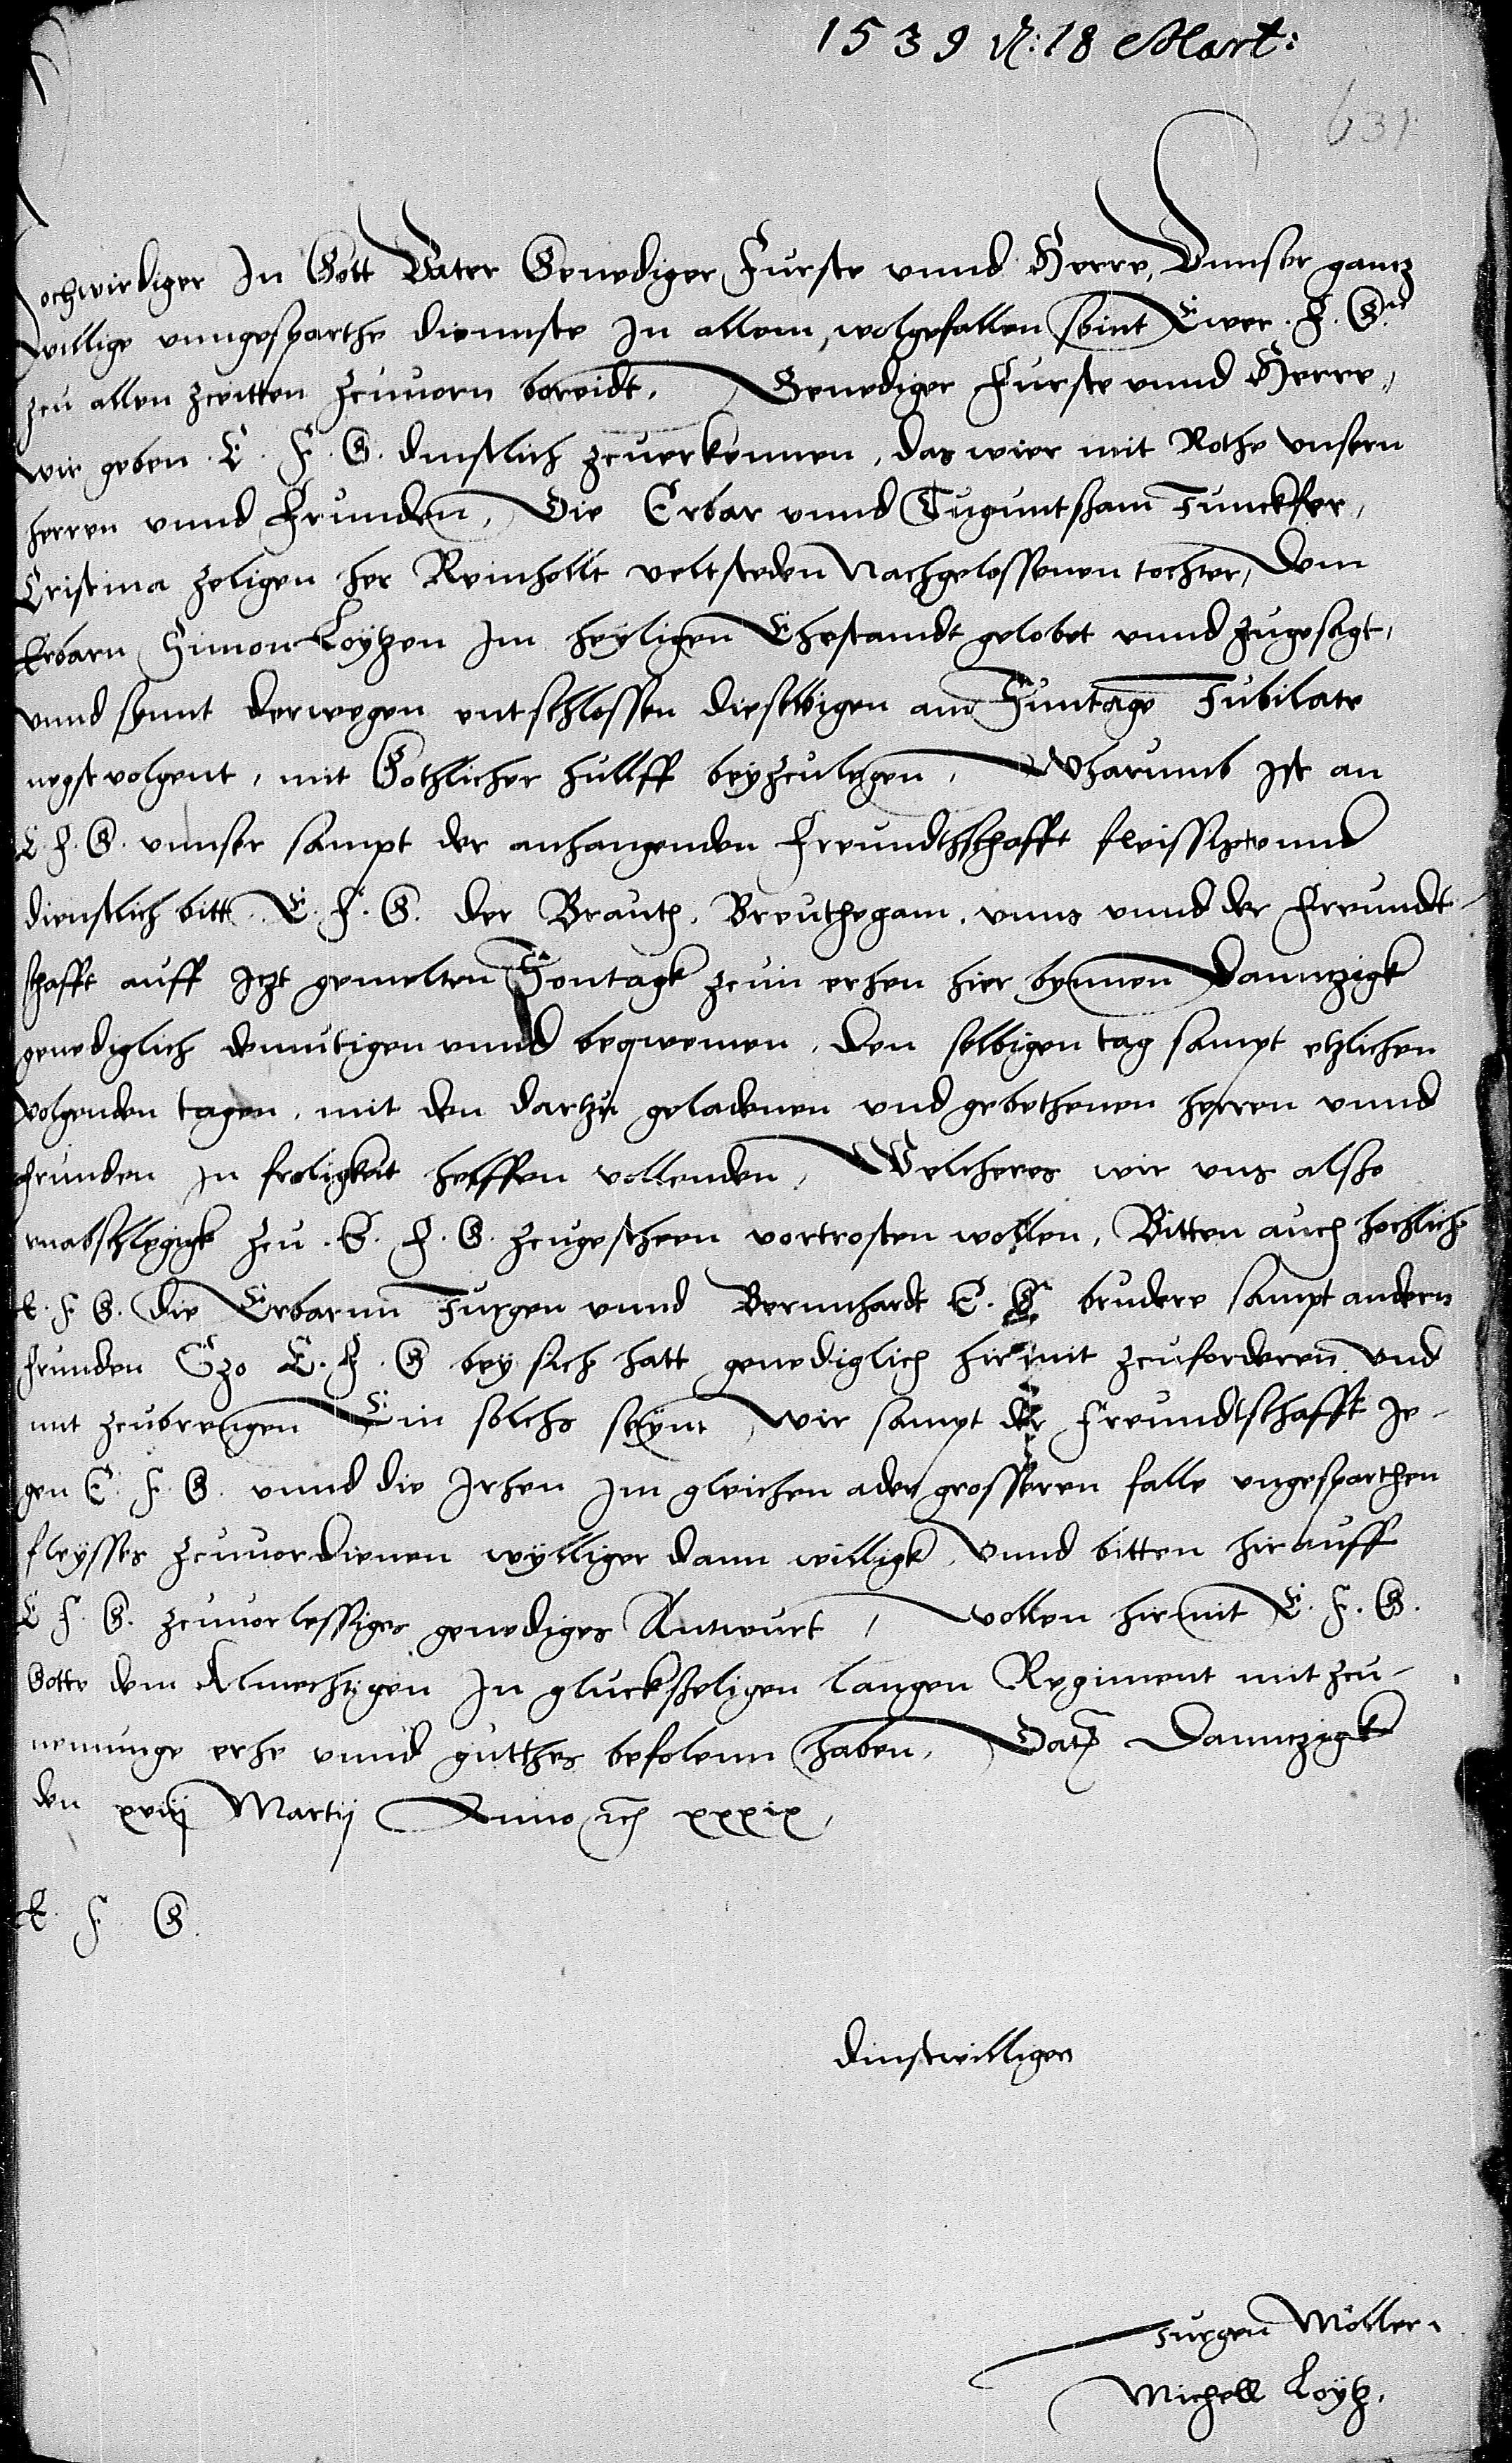 1539 d: 18 Mart:
631
Hochwirdiger In Gott Vater Genediger Furste vnnd Herre, Vnnser gantz
willige vnngesparthe diennste In allem, wolgefallen seint Ewer. F. G.
zcu allen zceitten zcuuorn bereidt. Genediger Furste vnnd Herre,
wir geben E. F. G. dinstlich zcuerkennen, das wier mit Rothe vnsern
herren vnnd Frunden, Die Erbar vnnd Tuguntsham Junckfer,
Cristina zeligen her Reinholtt veltsteden Nachgelossenen tochter, dem
Erbarn Simon Loytzen Im heyligen Ehestamdt gelobet vnnd zugesagt,
vnnd sennt derwegen entschlossen dieselbigen am Suntage Jubilate
negst volgent, mit Gothlicher hullff beyzculegen, Wharumb Ist an
E. F. G. vnnser sampt der anhangenden Freundtschafft fleissig vnnd
dienstlich bitt. E. F. G. der Brauth, Breuthegam, vnns vnnd der Freundt-
schafft auff Itzt gemelten Sontagk zcun erhen hier bynnen Danntzigk
genediglich demutigen vnnd beqwemen, den selbigen tag sampt etzlichen
volgenden tagen, mit den dartzu geladenen vnd gebethenen herren vnnd
frunden In froligkeit helffen vollenden, Welcheres wir vns alsho
vnabschlegigk zcu E. F. G. zcugescheen vortrosten wollen, Bitten auch hochlich
E. F. G. die Erbarnn Jurgen vnnd Bernnhardt E. G. brudere sampt andern
frunden Szo E. F. G bey sich hatt genediglich hir mit zcuforderen vnd
mit zcubrengen Ein solchs seynt wir sampt der Freundtschafft Je-
gen E. F. G. vnnd die Irhen Im gleichen ader grosseren falle vngesparthen
fleysses zcuuordienen wylliger dann willigk, Vnnd bitten hir auff
E F. G. zcuuorlessiges genediges Antwurt, Wollen hirmit E. F. G.
Gotte dem Almechtigen In gluckseligen langen Regiment mit zcu-
nemunge erhe vnnd gutthes befolenn haben, Dat Danntzigk
den xviij Martij Anno etc xxxix,
E. F. G.
dinstwilligen
Jurgen Möller.
Michell Loytz.